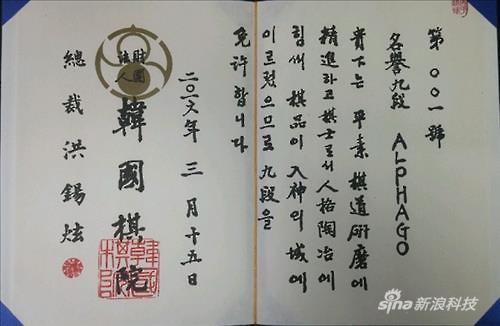 第〇〇一號
名譽九段 ALPHAGO
貴下는 平素 棋道硏磨에
精進하고 棋士로서 人格陶冶에
힘써 棋品이 入神의 域에
이르렀으므로 九段을
免許합니다
二〇一六年 三月十五日
財團
法人
韓國棋院
總裁 洪錫炫
sina新浪科技